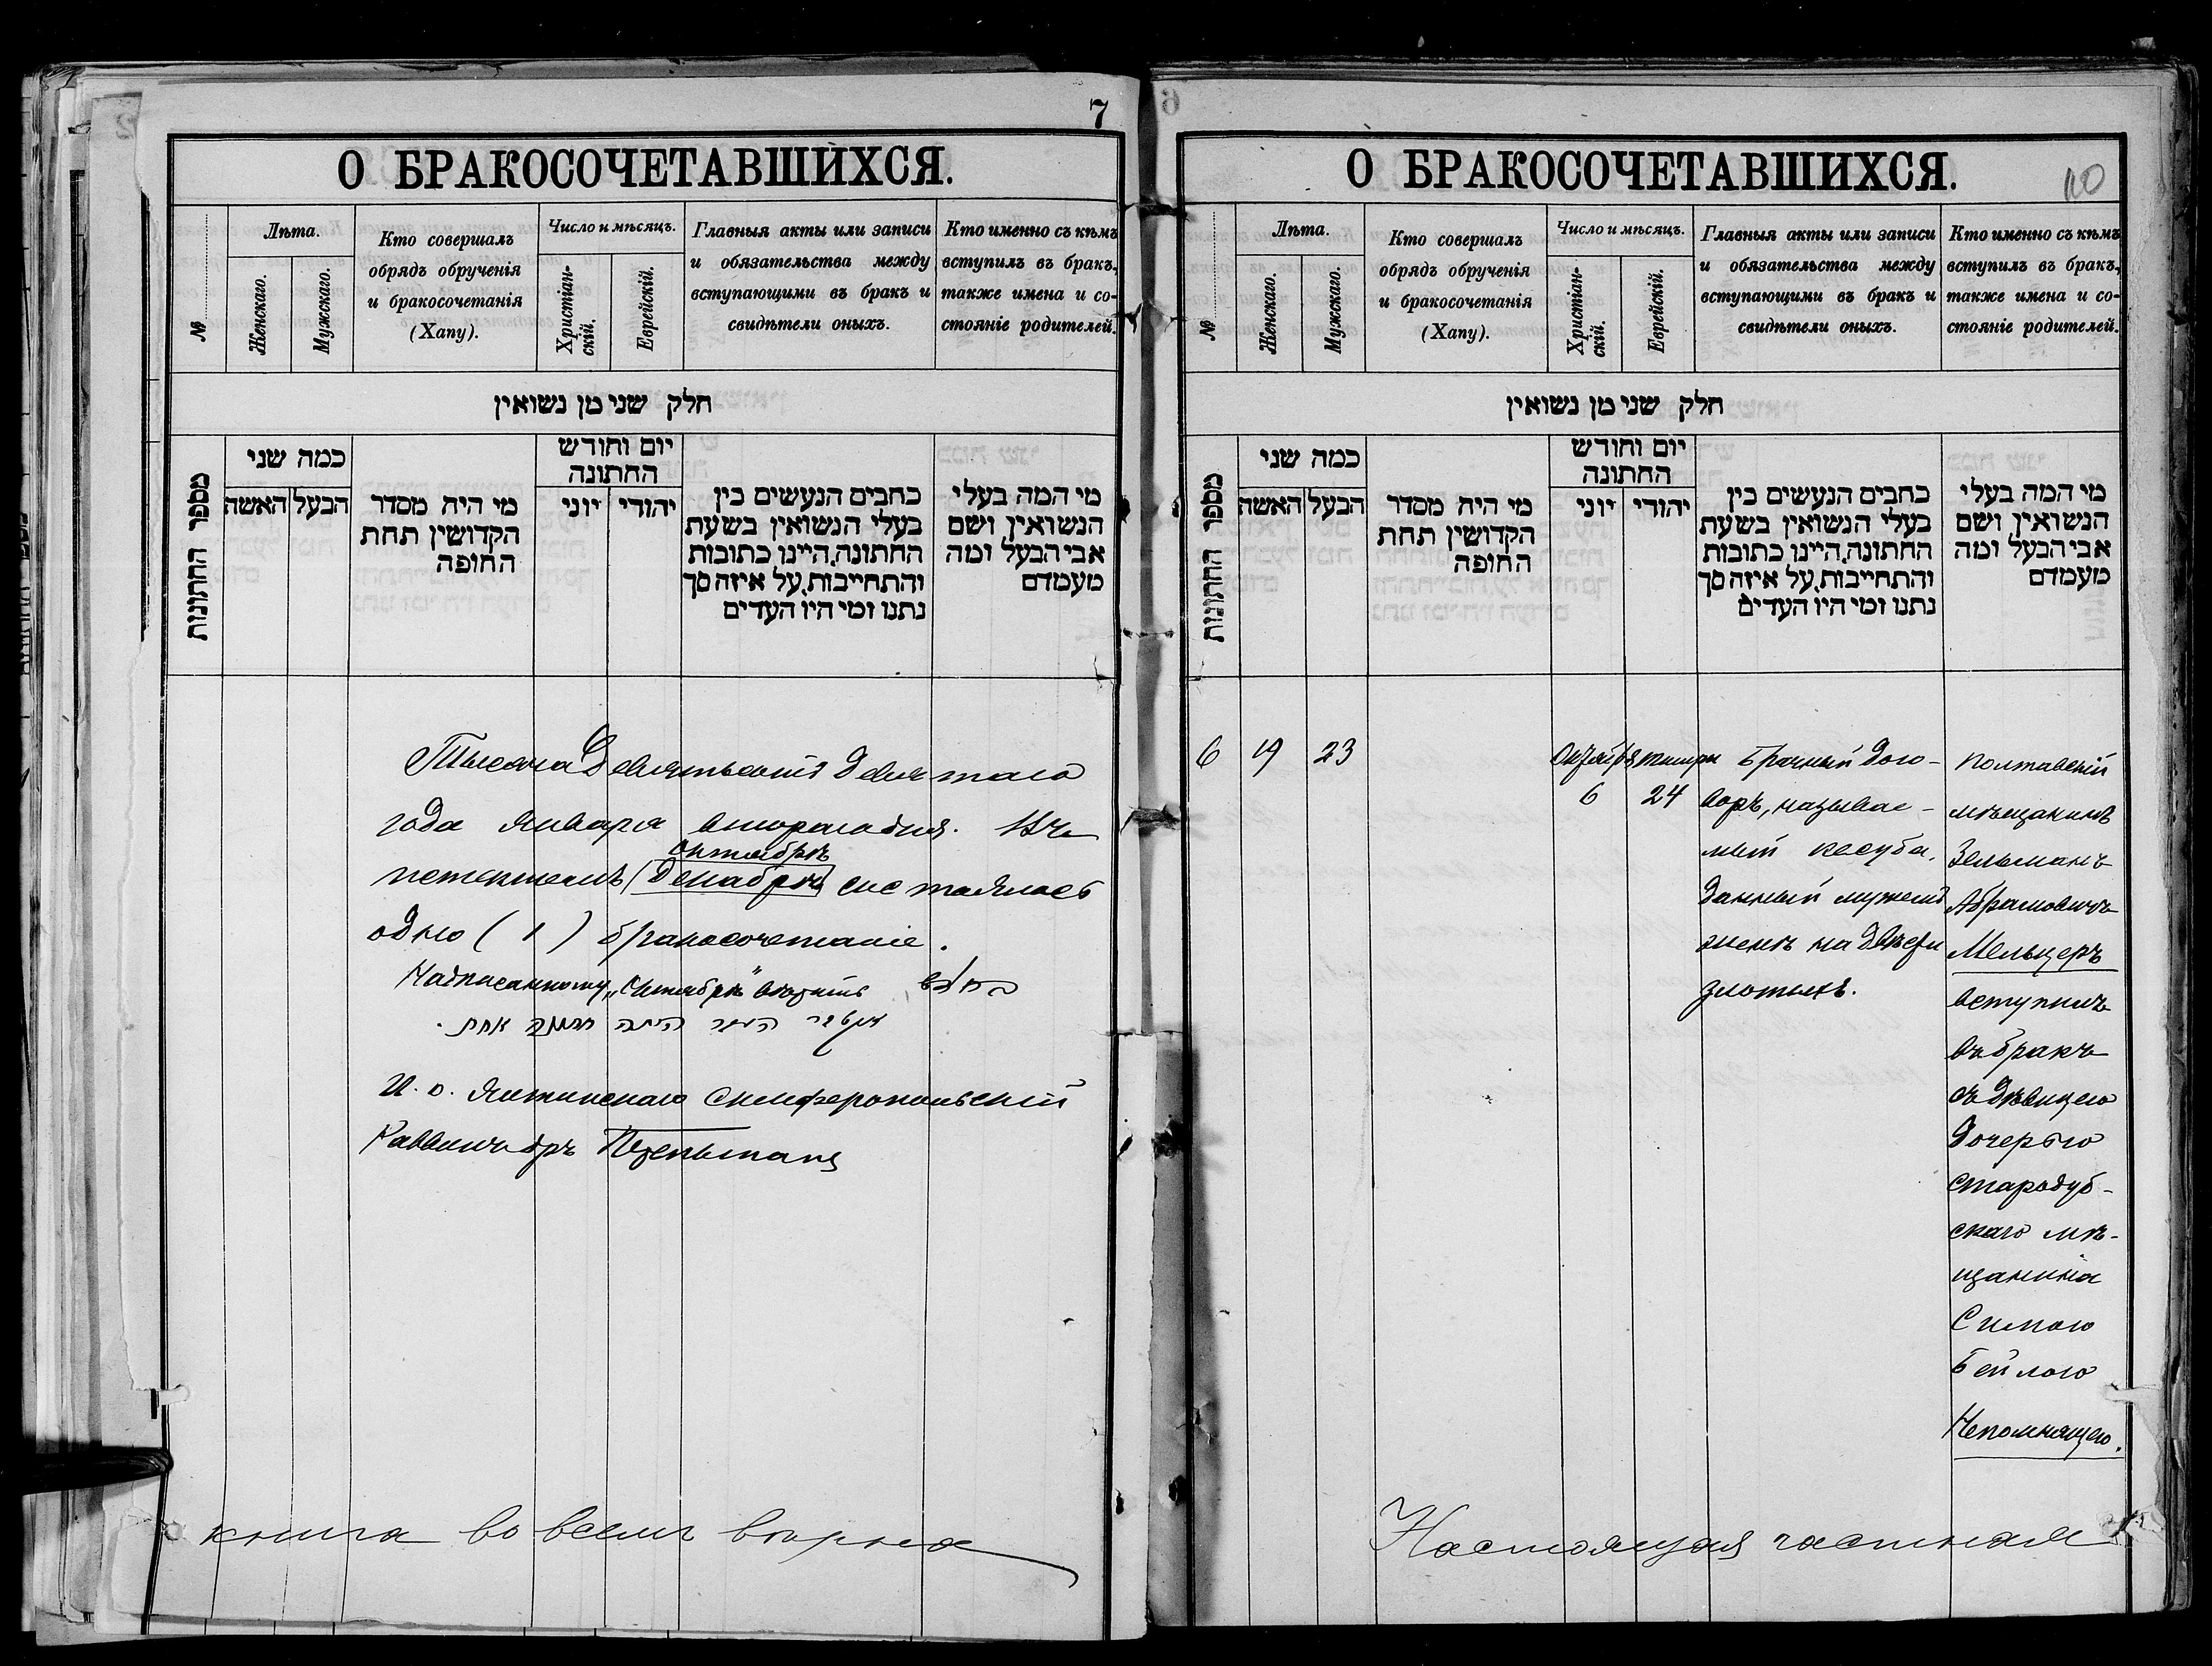 7
О БРАКОСОЧЕТАВШИХСЯ.
№
Лѣта.
Женскаго.
Мужскаго.
Кто совершалъ
обрядъ обрученія
и бракосочетанія
(Хапу).
Число и мѣсяцъ.
Христіан-
скій.
Еврейскій.
Главныя акты или записи
и обязательства между
вступающими въ бракъ и
свидѣтели оныхъ.
Кто именно съ кѣмъ
вступилъ въ бракъ,
также имена и со-
стояніе родителей.
חלק שני מן נשואין
מספר החתונות
כמה שני
הבעל האשה
מי היה מסדר
הקדושין תחת
החופה
יום וחודש
החתונה
יהודי יוני
כתבים הנעשים בין
בעלי הנשואין בשעת
החתונה, היינו כתובות
והתחייבות, על איזה סך
נתנו ומי היו העדים
מי המה בעלי
הנשואין ושם
אבי הבעל ומה
מעמדם
Тысяча Девятьсотъ девятаго
года января второгодня. Въ
октябрѣ
истекшемъ (декабрѣ) состоялось
одно (1) бракосочетаніе.
Надписанному „Октябрѣ" вѣрить
היתה חתונה אחת.
И. о. Ялтинскаго Симферопольскій
Раввинъ
книга во всемъ вѣрна
6
О БРАКОСОЧЕТАВШИХСЯ.
10
№
Лѣта.
Женскаго.
Мужскаго.
Кто совершалъ
обрядъ обрученія
и бракосочетанія
(Хапу).
Число и мѣсяцъ.
Христіан-
скій.
Еврейскій.
Главныя акты или записи
и обязательства между
вступающими въ бракъ и
свидѣтели оныхъ.
Кто именно съ кѣмъ
вступилъ въ бракъ,
также имена и со-
стояніе родителей.
חלק שני מן נשואין
מספר החתונות
כמה שני
הבעל האשה
מי היה מסדר
הקדושין תחת
החופה
יום וחודש
החתונה
יהודי יוני
כתבים הנעשים בין
בעלי הנשואין בשעת
החתונה, היינו כתובות
והתחייבות, על איזה סך
נתנו ומי היו העדים
מי המה בעלי
הנשואין ושם
אבי הבעל ומה
מעמדם
6 19 23
Октября
6
тишри
24
Брачный дого-
воръ, называе-
мый кесуба,
данный мужемъ
женѣ на двѣсти
злотыхъ.
Полтавскій
мѣщанинъ
Зельманъ
Абрамовичъ
Мельцеръ
вступилъ
въ бракъ
съ дѣвицею
дочерью
стародуб-
скаго мѣ-
щанина
Симою
Бейлою
Непомнящею.
Настоящая частная